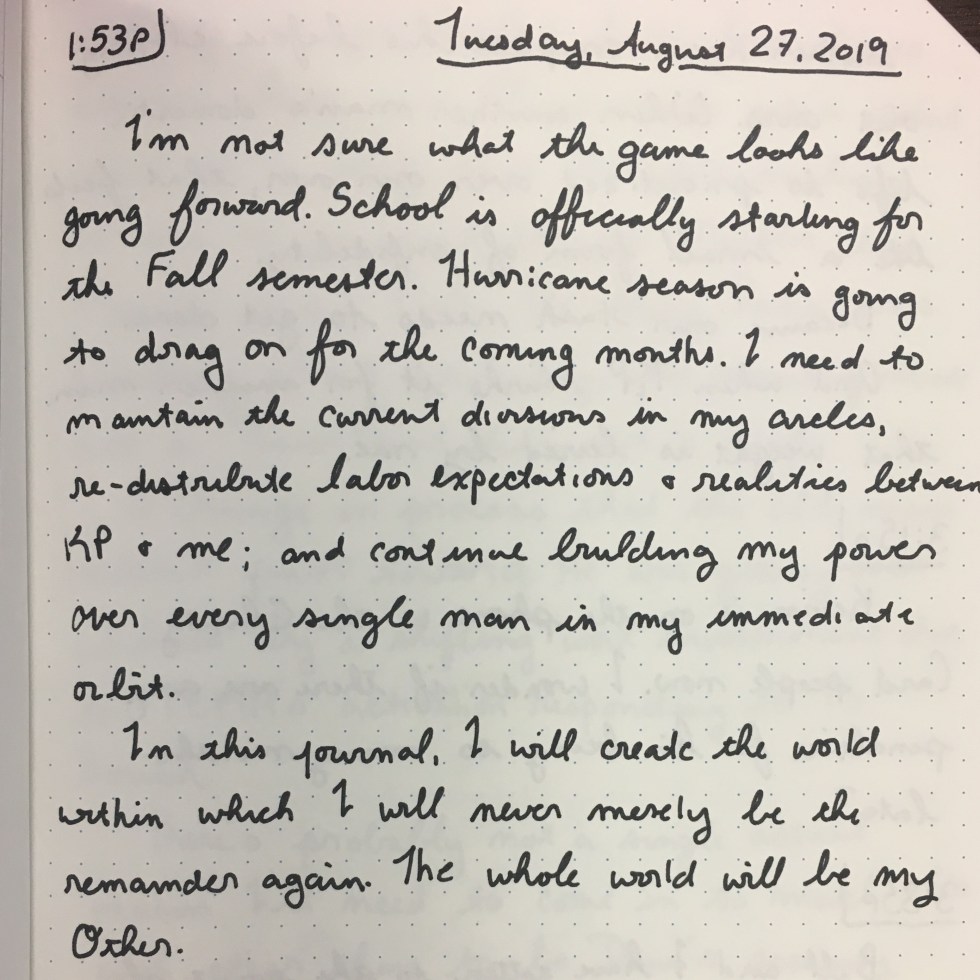 1:53P
Tuesday, August 27, 2019
I'm not sure what the game looks like
going forward. School is officially starting for
the Fall semester. Hurricane season is going
to drag on for the coming months. I need to
maintain the current divisions in my circles,
re-distribute labor expectations & realities between
KP & me; and continue building my power
over every single man in my immediate
orbit.
In this journal, I will create the world
within which I will never merely be the
remainder again. The whole world will be my
Other.